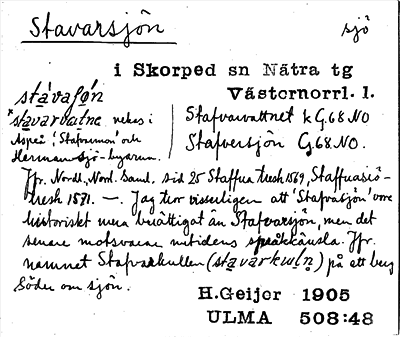 Stavarsjön
sjö
i Skorped sn Nätra tg
Västernorrl. l.
stavaʃøn
*stavarvatne nekes i
Aspeå, 'Stafvamon' och
Hermansjö-byarna.
Stafvarvattnet k G.68 NO
Stafversjön G.68 NO.
Jfr. Nordl. Norrl. Saml. sid 25 Staffua tresk 1569, Staffuasiö-
tresk 1571. —. Jag tror visserligen att 'Stafvasjön' vore
historiskt mera berättigat än Stafvarsjön, men det
senare motsvarar nutidens språkkänsla. Jfr.
namnet Stafvarkullen (stavarkulṇ) på ett berg
Söder om sjön.
H.Geijer 1905
ULMA 508:48